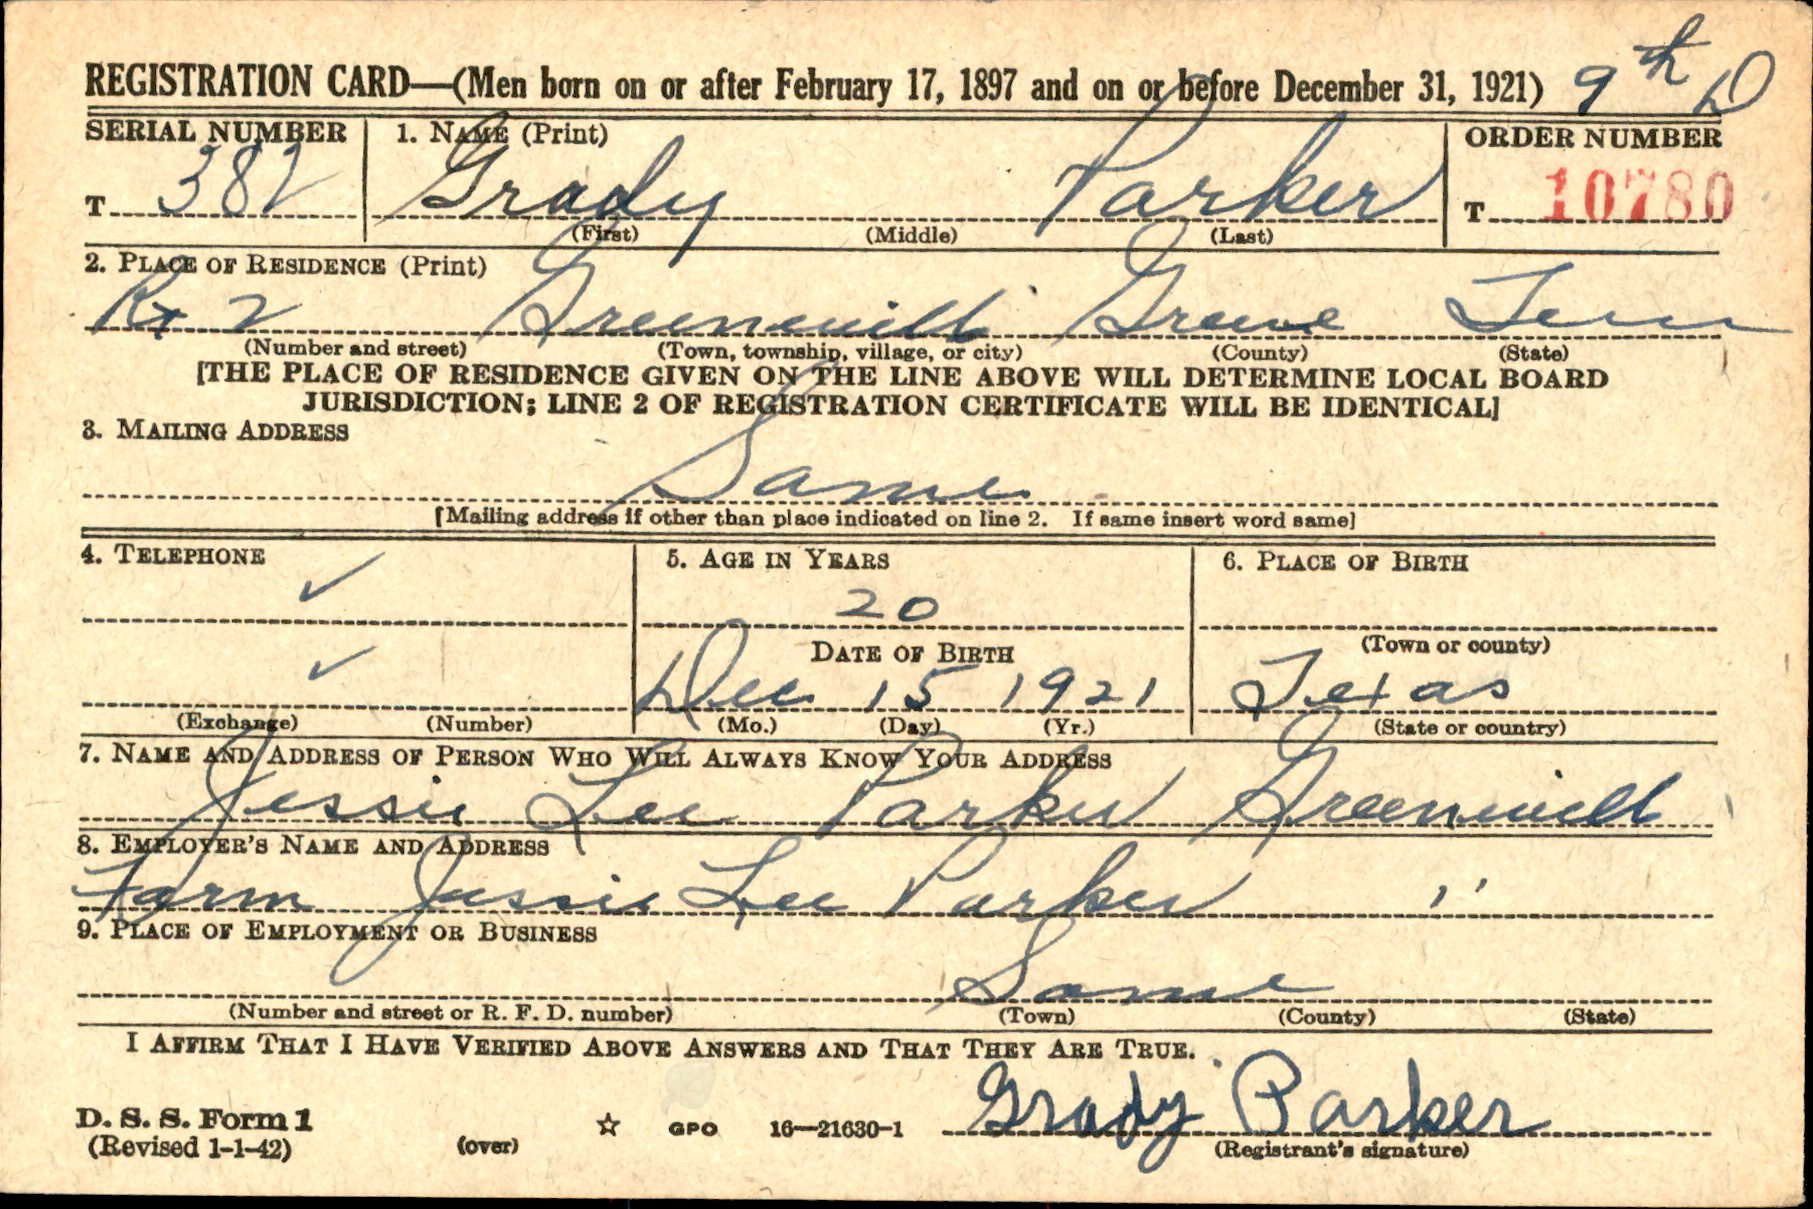 REGISTRATION CARD—(Men born on or after February 17, 1897 and on or before December 31, 1921) 9th D
SERIAL NUMBER 1. NAME (Print) ORDER NUMBER
T 382 Grady Parker T 10780
(First) (Middle) (Last)
2. PLACE OF RESIDENCE (Print)
Rt 2 Greenevill Greene Tenn
(Number and street) (Town, township, village, or city) (County) (State)
[THE PLACE OF RESIDENCE GIVEN ON THE LINE ABOVE WILL DETERMINE LOCAL BOARD
JURISDICTION; LINE 2 OF REGISTRATION CERTIFICATE WILL BE IDENTICAL]
3. MAILING ADDRESS
Same
[Mailing address if other than place indicated on line 2. If same insert word same]
4. TELEPHONE 5. AGE IN YEARS 6. PLACE OF BIRTH
✓ 20
DATE OF BIRTH (Town or county)
✓ Dec 15 1921 Texas
(Exchange) (Number) (Mo.) (Day) (Yr.) (State or country)
7. NAME AND ADDRESS OF PERSON WHO WILL ALWAYS KNOW YOUR ADDRESS
Jessie Lee Parker Greenevill
8. EMPLOYER'S NAME AND ADDRESS
Farm Jessie Lee Parker "
9. PLACE OF EMPLOYMENT OR BUSINESS
Same
(Number and street or R. F. D. number) (Town) (County) (State)
I AFFIRM THAT I HAVE VERIFIED ABOVE ANSWERS AND THAT THEY ARE TRUE.
D. S. S. Form 1 Grady Parker
(Revised 1-1-42) (over) ☆ GPO 16—21630-1 (Registrant's signature)